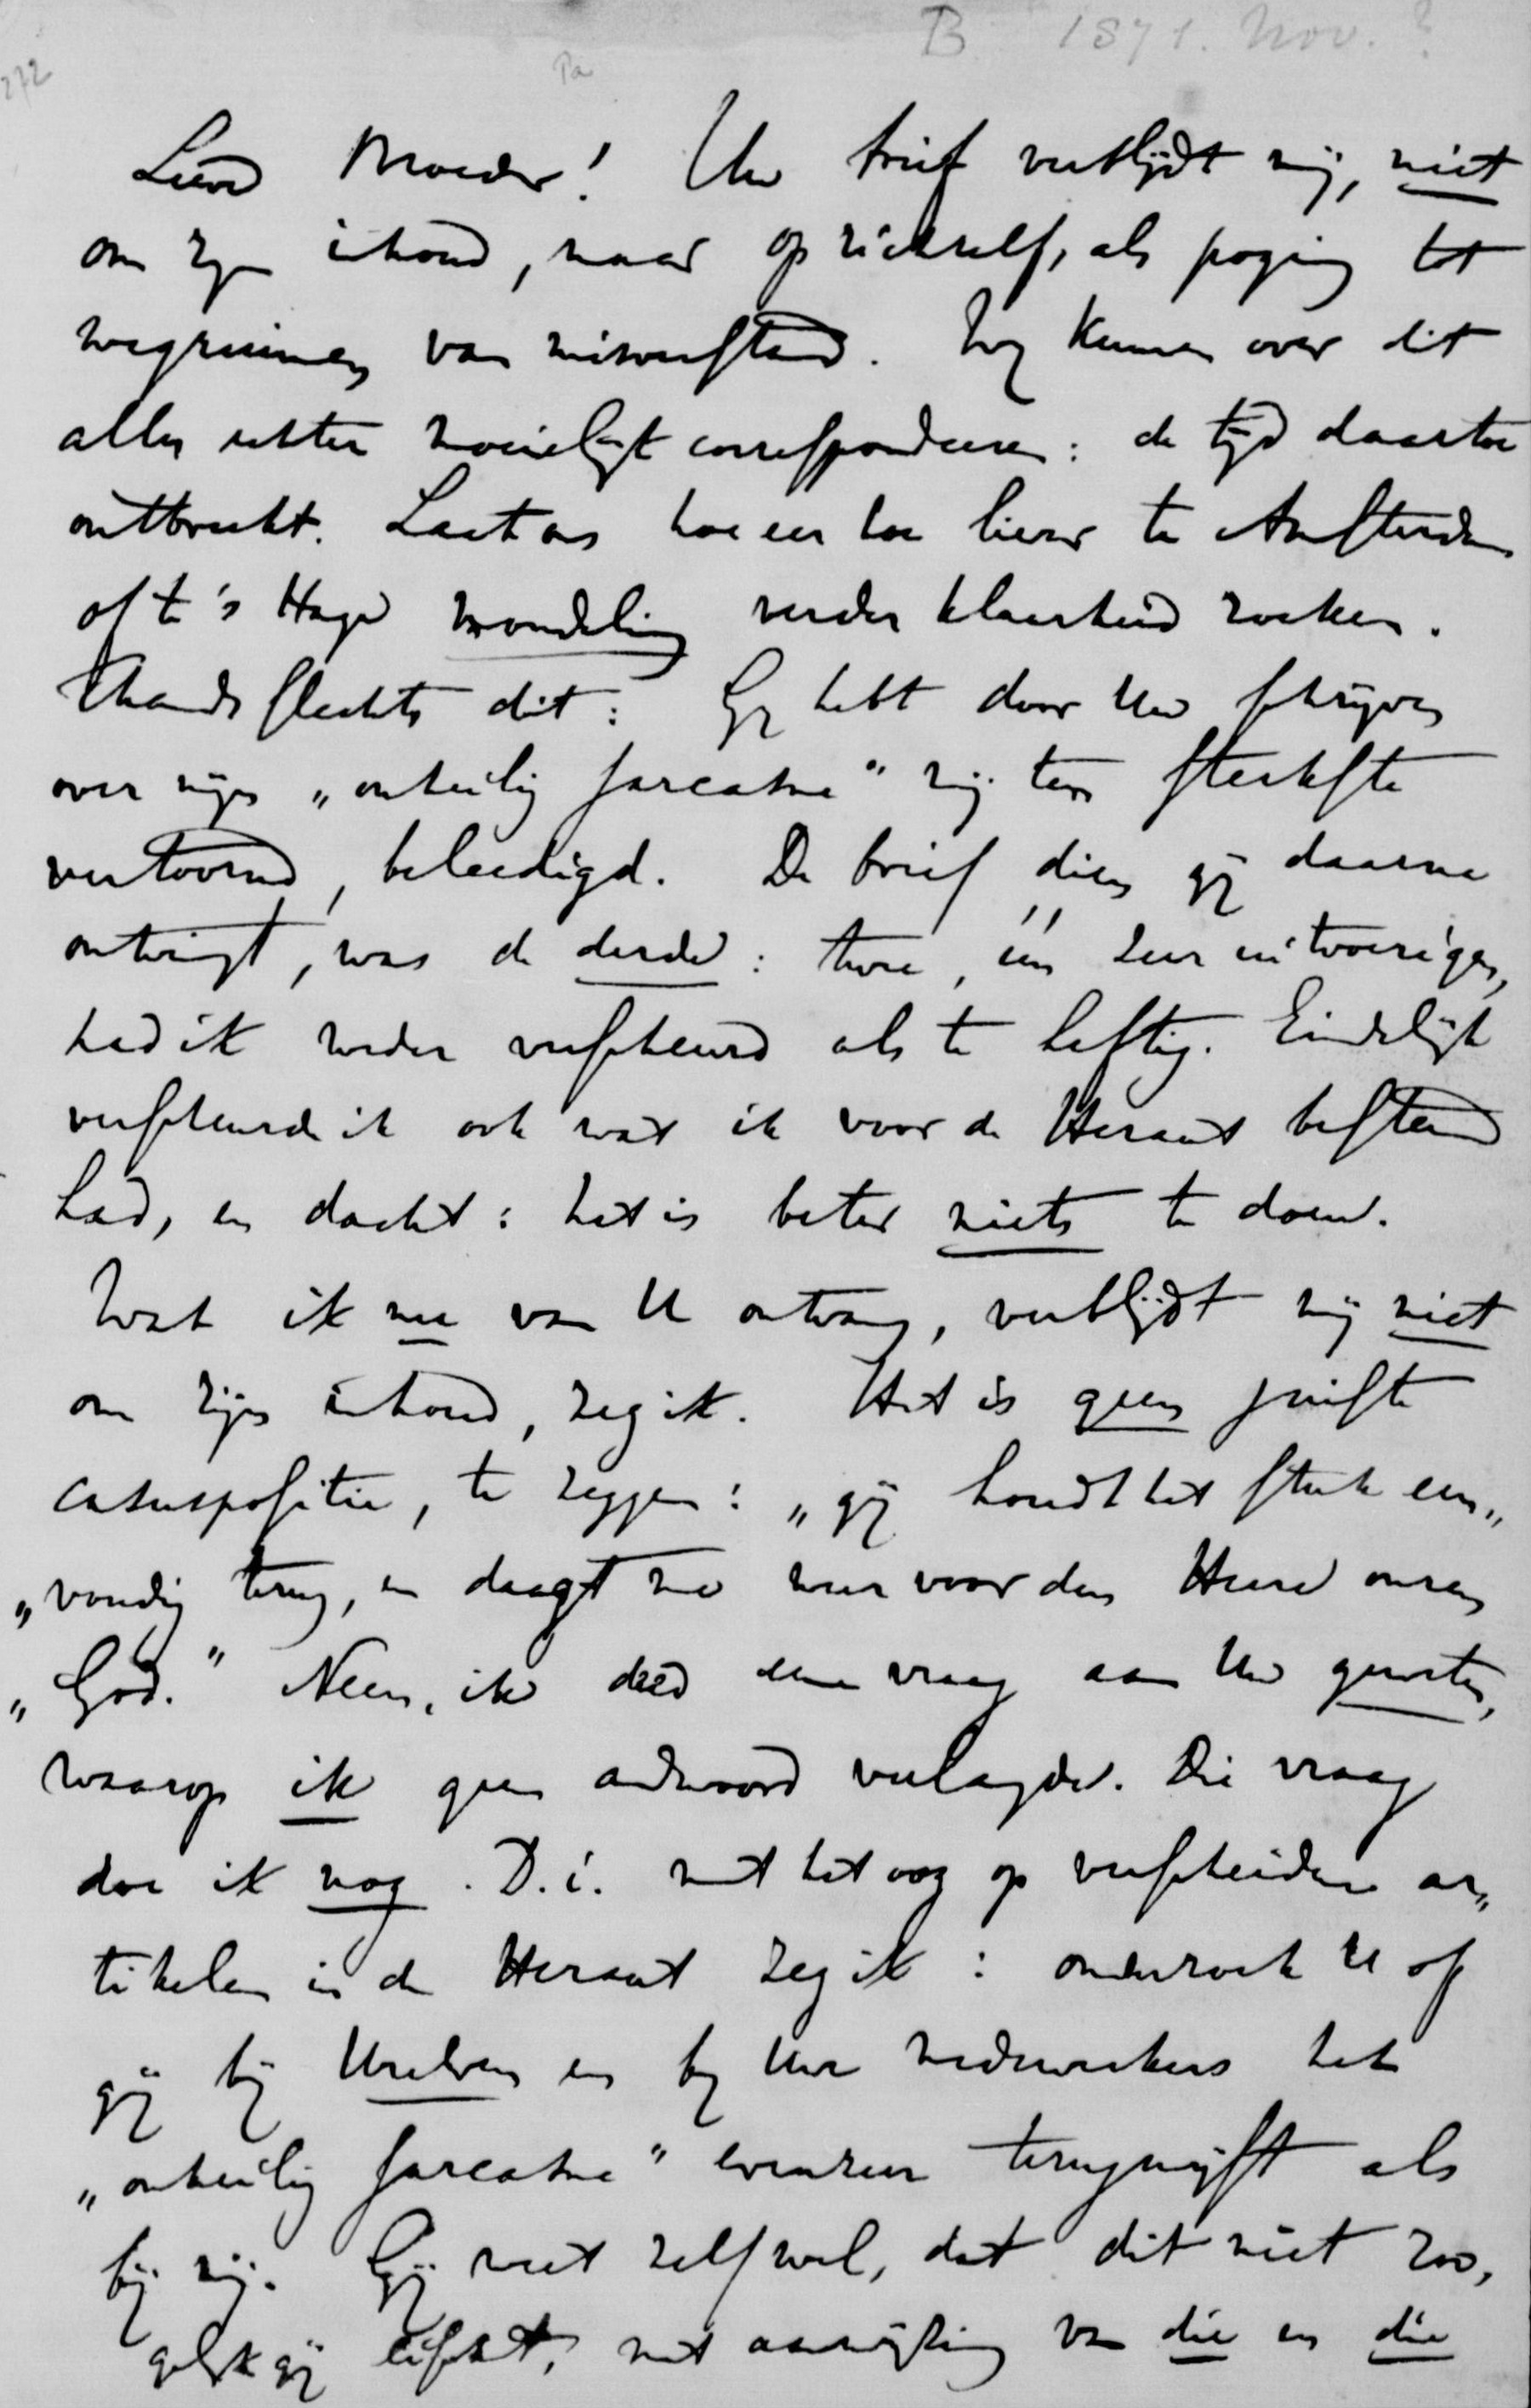 B 1871. Nov. ?
272
Pa
Lieve Moeder! Uw brief verblijdt mij, niet
om zijn inhoud, maar op zichzelf, als poging tot
wegruiming van misverstand. Wij kunnen over dit
alles echter moeielijk correspondeeren: de tijd daartoe
ontbreekt. Laat ons hoe eer hoe liever te Amsterdam
of te 's Hage mondeling verder klaarheid zoeken.
Thands slechts dit: Gij hebt door Uw schrijven
over mijn „onheilig sarcasme" mij ten sterkste
vertoornd, beleedigd. De brief dien gij daarna
ontvingt, was de derde: twee, één zeer uitvoerigen,
had ik weder verscheurd als te heftig. Eindelijk
verscheurde ik ook wat ik voor de Heraut bestemd
had, en dacht: het is beter niets te doen.
Wat ik nu van U ontvang, verblijdt mij niet
om zijn inhoud, zeg ik. Het is geen juiste
casuspositie, te zeggen: „gij houdt het stuk een„
„voudig terug, en daagt me weer voor den Heere onzen
„God." Neen, ik deed eene vraag aan Uw geweten,
waarop ik geen antwoord verlangde. Die vraag
doe ik nog. D.i. met het oog op verscheidene ar„
tikelen in de Heraut zeg ik: onderzoek U of
gij bij Uzelven en bij Uwe medewerkers het
„onheilig sarcasme" evenzeer terugwijst als
bij mij. Gij weet zelf wel, dat dit niet zoo,
gelijk gij eischt, met aanwijzing van die en die